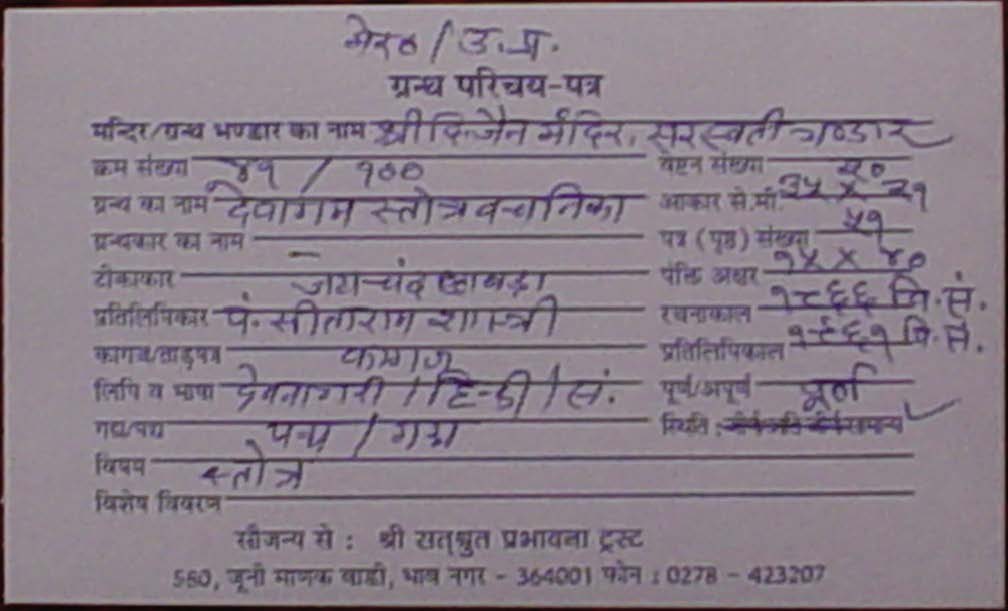 मेरठ / उ.प्र.
ग्रन्थ परिचय-पत्र
मन्दिर/ग्रन्थ भण्डार का नाम श्री दि. जैन मंदिर, सरस्वती भण्डार
क्रम संख्या ४१ / १०० वेष्टन संख्या २०
ग्रन्थ का नाम देवागम स्तोत्र वचानिका आकार से.मी. ३५ X २१
ग्रन्थकार का नाम — पत्र (पृष्ठ) संख्या ५१
टीकाकार जयचंद छावड़ा पंक्ति अक्षर १५ X ४०
प्रतिलिपिकार पं. सीताराम शास्त्री रचनाकाल १८६६ वि. सं.
कागज/ताड़पत्र कागज प्रतिलिपिकाल १९६१ वि. सं.
लिपि व भाषा देवनागरी / हिन्दी / सं. पूर्ण/अपूर्ण पूर्ण
गद्य/पद्य पद्य / गद्य स्थिति : जीर्ण अति जीर्ण सामान्य ✓
विषय स्तोत्र
विशेष विवरण
सौजन्य से : श्री सत्श्रुत प्रभावना ट्रस्ट
580, जूनी माणक वाडी, भाव नगर - 364001 फोन : 0278 - 423207